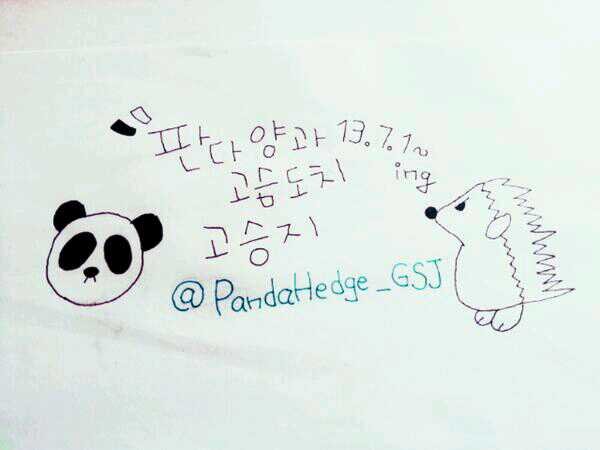 판다양과 13.7.1~
ing
고슴도치
고승지
@PandaHedge_GSJ